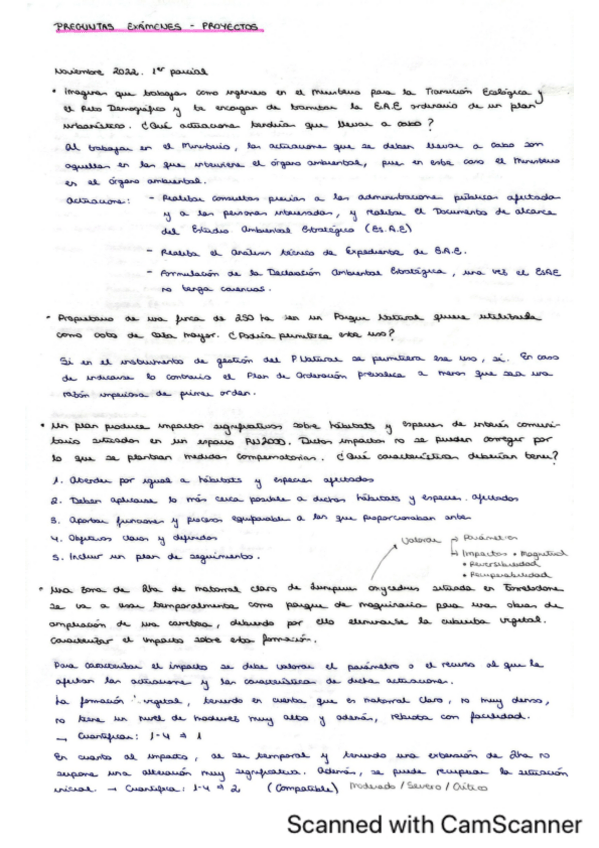 PREGUNTAS EXÁMENES - PROYECTOS
Noviembre 2022. 1er parcial
• Imagina que trabajas como ingeniero en el Ministerio para la Transición Ecológica y
el Reto Demográfico y te encargan de tramitar la E.A.E ordinaria de un plan
urbanístico. ¿Qué actuaciones tendría que llevar a cabo?
Al trabajar en el Ministerio, las actuaciones que se deben llevar a cabo son
aquellas en las que interviene el órgano ambiental, pues en este caso el Ministerio
es el órgano ambiental.
Actuaciones: - Realizar consultas previas a las administraciones públicas afectadas
y a las personas interesadas, y realizar el Documento de alcance
del Estudio Ambiental Estratégico (Es.A.E)
- Realiza el Análisis técnico de Expediente de E.A.E.
- Formulación de la Declaración Ambiental Estratégica, una vez el EsAE
no tenga carencias.
• Propietario de una finca de 250 ha en un Parque Natural quiere utilizarla
como coto de caza mayor. ¿Podría permitirse este uso?
Si en el instrumento de gestión del P.Natural se permitiera ese uso, sí. En caso
de indicarse lo contrario el Plan de Ordenación prevalece a menos que sea una
razón imperiosa de primer orden.
• Un plan produce impactos significativos sobre hábitats y especies de interés comuni-
tario situados en un espacio RN2000. Dichos impactos no se pueden corregir por
lo que se plantean medidas compensatorias. ¿Qué características deberían tener?
1. Atender por igual a hábitats y especies afectados
2. Deben aplicarse lo más cerca posible a dichos hábitats y especies afectados
3. Aportar funciones y procesos equiparables a los que proporcionaban antes
4. Objetivos claros y definidos
5. Incluir un plan de seguimiento.
Valorar
Parámetros
Impactos • Magnitud
• Reversibilidad
• Recuperabilidad
• Una zona de 2ha de matorral claro de Juniperus oxycedrus situada en Torrelodones
se va a usar temporalmente como parque de maquinaria para unas obras de
ampliación de una carretera, debiendo por ello eliminarse la cubierta vegetal.
Caracterizar el impacto sobre esta formación.
Para caracterizar el impacto se debe valorar el parámetro o el recurso al que le
afectan las actuaciones y las características de dichas actuaciones.
La formación vegetal, teniendo en cuenta que es matorral claro, no muy denso,
no tiene un nivel de madurez muy alto y además, rebrota con facilidad.
→ Cuantificar: 1-4 → 1
En cuanto al impacto, al ser temporal y teniendo una extensión de 2ha no
supone una alteración muy significativa. Además, se puede recuperar la situación
inicial. → Cuantifica: 1-4 → 2 (Compatible) Moderado / Severo / Crítico
Scanned with CamScanner